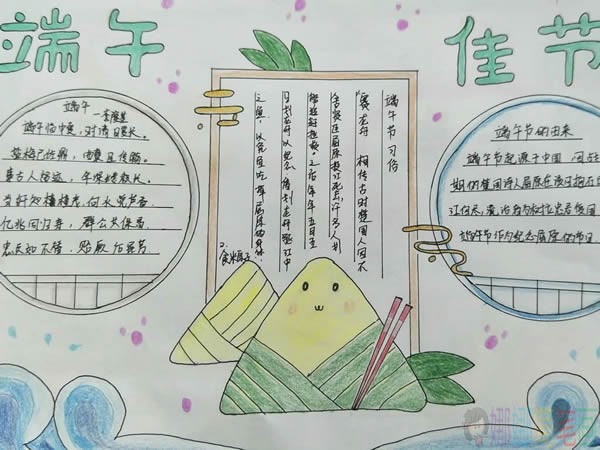 端午佳节
端午 李隆基
端午临中夏,时清日复长。
盐梅已佐鼎,曲糵且传觞。
事古人留迹,年深缕积长。
当轩知槿茂,向水觉芦香。
亿兆同归寿,群公共保昌。
忠贞如不替,贻厥后昆芳。
端午节习俗
赛龙舟 相传古时楚国人因不
舍贤臣屈原投江死去,许多人划
船追赶拯救。之后每年五月五
日划龙舟以纪念 借划龙舟驱江中
之鱼,以免鱼吃掉屈原的身体
2.食粽子
端午节的由来
端午节起源于中国
期的楚国诗人屈原在该日抱石
江自尽,
端午节作为纪念屈原的节日